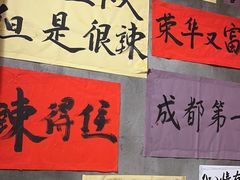 但是很辣
荣华又富
辣得住
成都第一